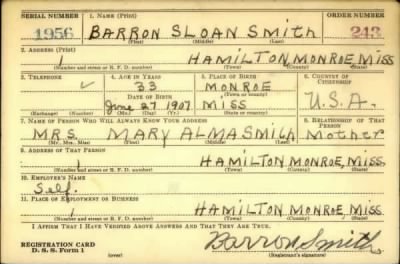 SERIAL NUMBER 1. NAME (Print) ORDER NUMBER
1956 BARRON SLOAN SMITH 243
(First) (Middle) (Last)
2. ADDRESS (Print)
1 HAMILTON, MONROE, MISS
(Number and street or R. F. D. number) (Town) (County) (State)
3. TELEPHONE 4. AGE IN YEARS 5. PLACE OF BIRTH 6. COUNTRY OF CITIZENSHIP
33 MONROE
DATE OF BIRTH (Town or county)
June 27 1907 MISS U.S.A.
(Exchange) (Number) (Mo.) (Day) (Yr.) (State or country)
7. NAME OF PERSON WHO WILL ALWAYS KNOW YOUR ADDRESS 8. RELATIONSHIP OF THAT PERSON
MRS. MARY ALMA SMITH Mother
(Mr., Mrs., Miss) (First) (Middle) (Last)
9. ADDRESS OF THAT PERSON
1 HAMILTON MONROE, MISS.
(Number and street or R. F. D. number) (Town) (County) (State)
10. EMPLOYER'S NAME
Self.
11. PLACE OF EMPLOYMENT OR BUSINESS
1 HAMILTON MONROE, MISS
(Number and street or R. F. D. number) (Town) (County) (State)
I AFFIRM THAT I HAVE VERIFIED ABOVE ANSWERS AND THAT THEY ARE TRUE.
REGISTRATION CARD
D. S. S. Form 1 (over) Barron Smith
(Registrant's signature)